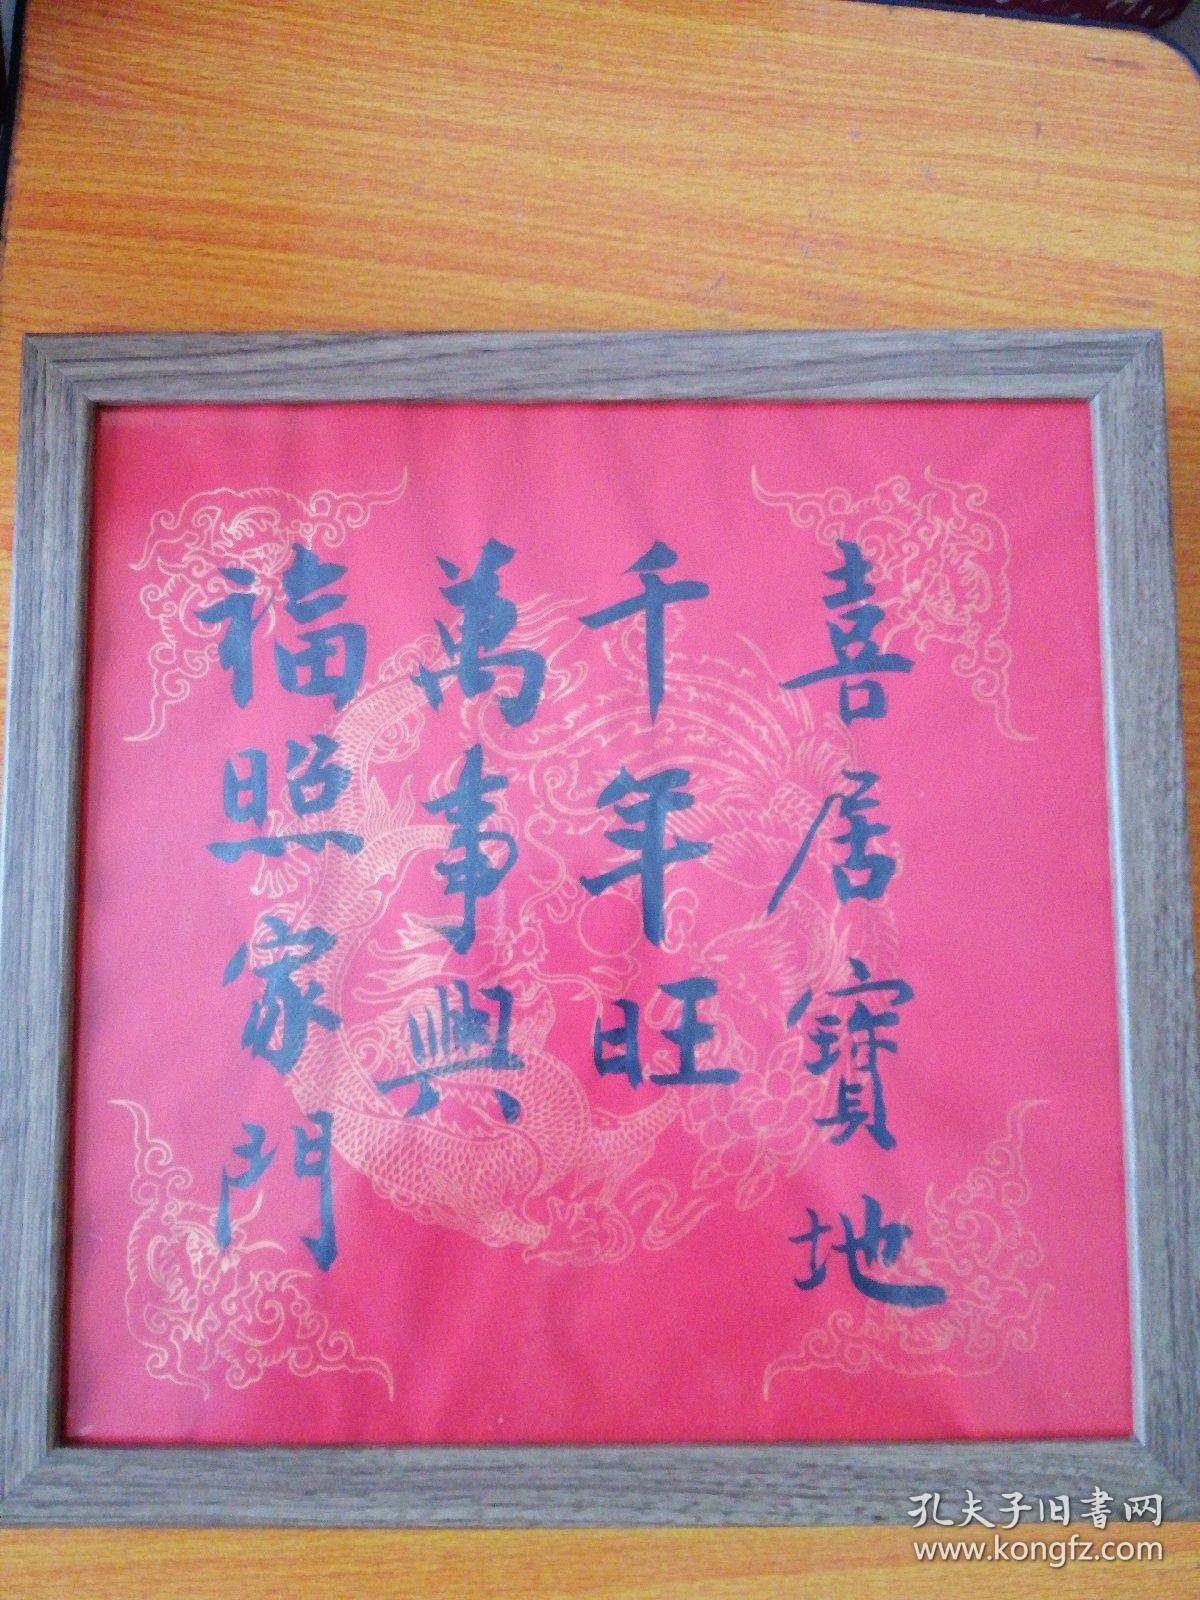 喜居寶地
千年旺
萬事興
福照家門
孔夫子旧书网
www.kongfz.com